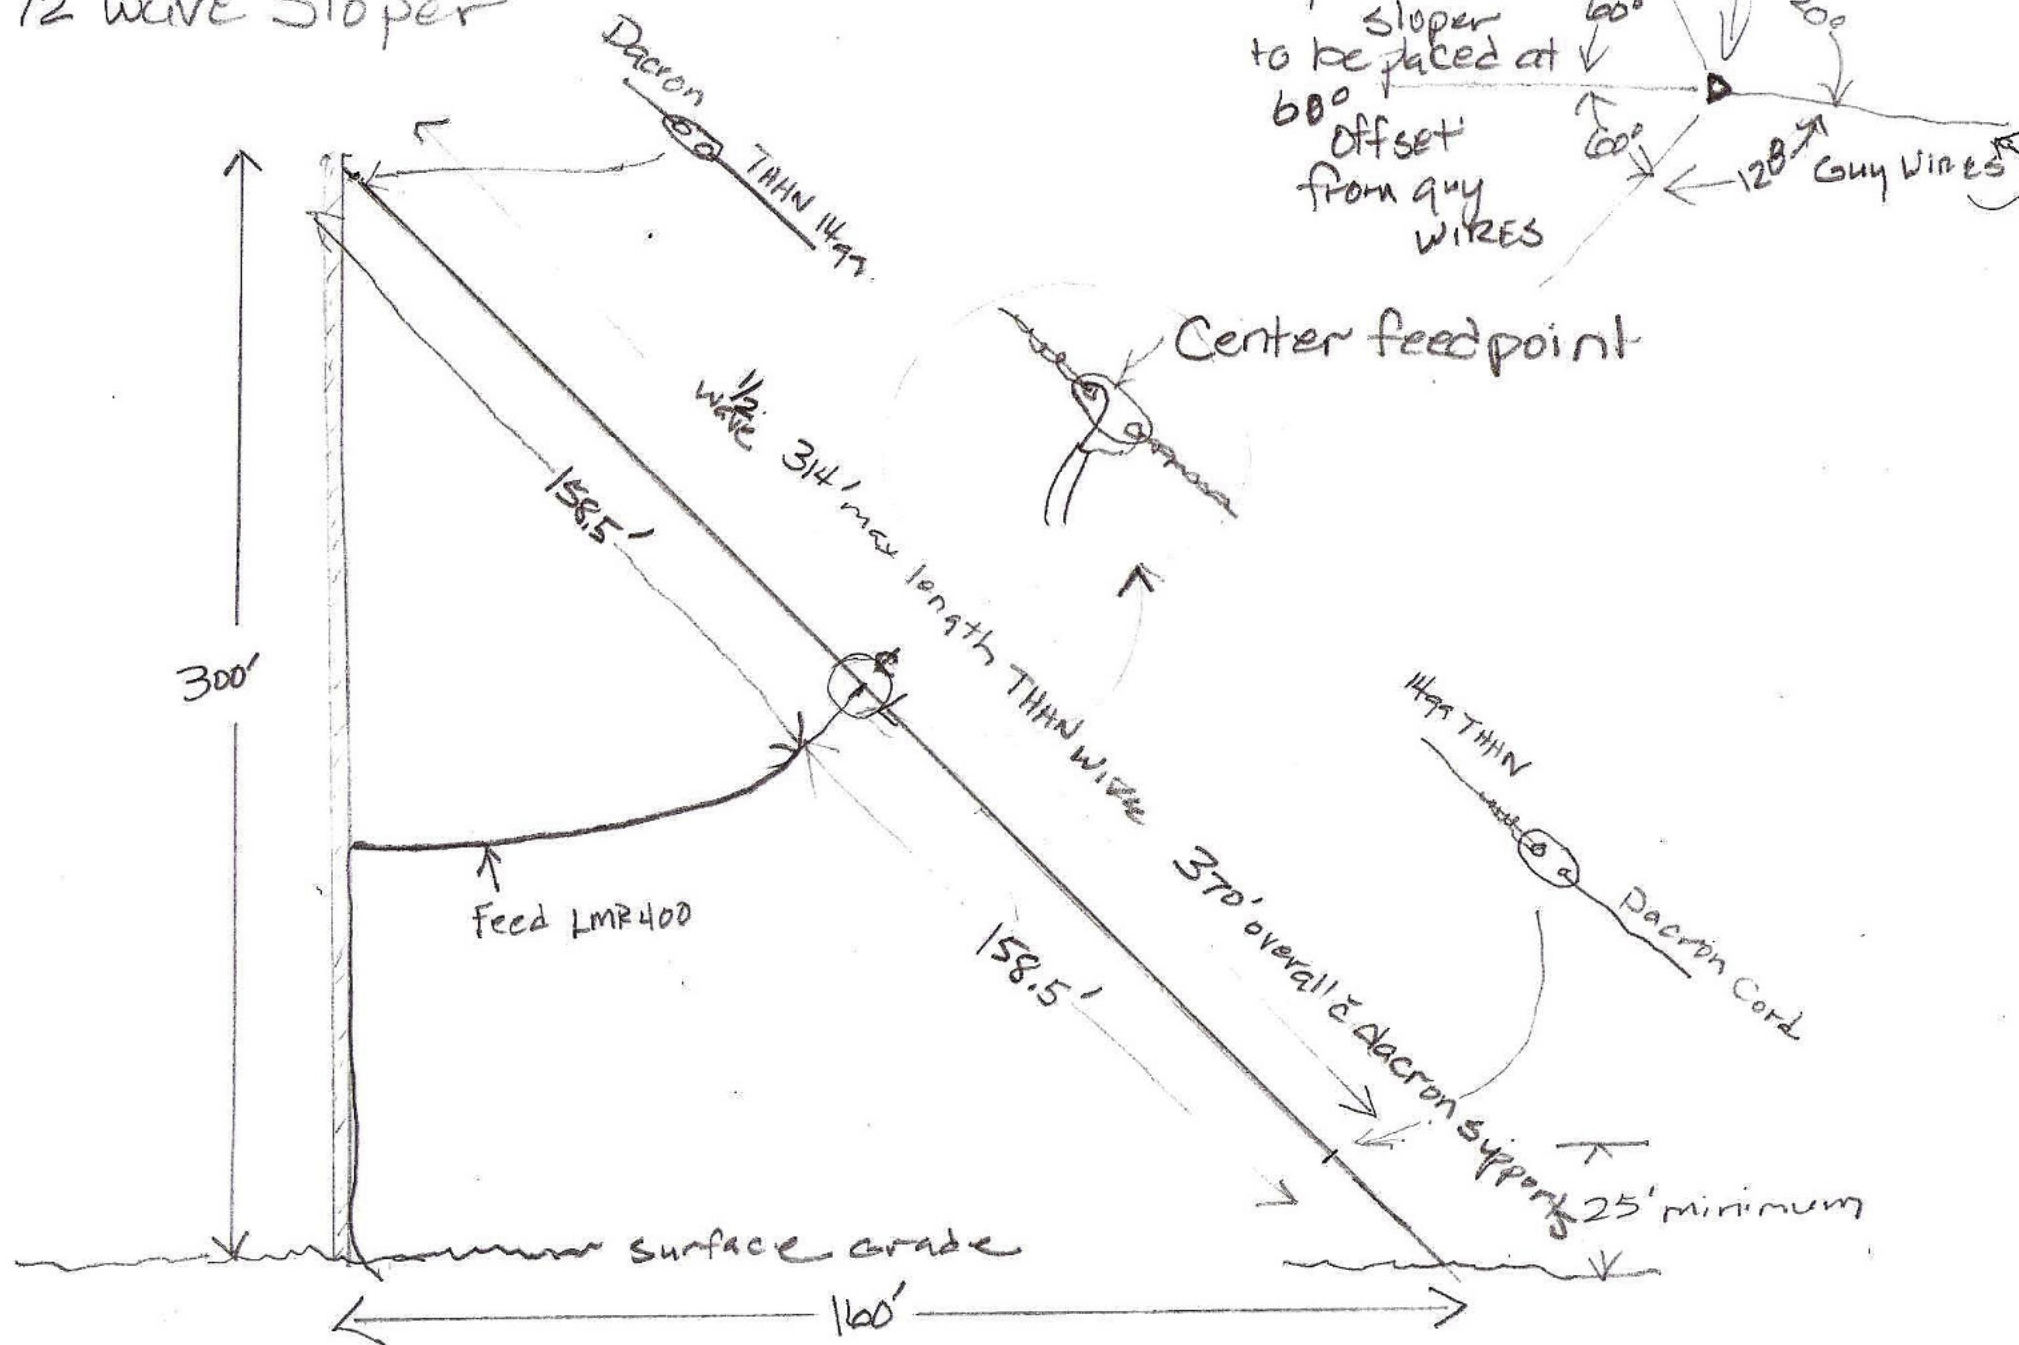 1/2 Wave Sloper
sloper
to be placed at
60°
offset
from guy
WIRES
60°
60°
120
Guy WIRES
Dacron
THHN 14ga.
Center feedpoint
1/2
wave 314' max length THHN WIRE
370' overall c̄ dacron supports
158.5'
158.5'
300'
14ga THHN
Dacron Cord
Feed LMR400
25' minimum
surface Grade
160'